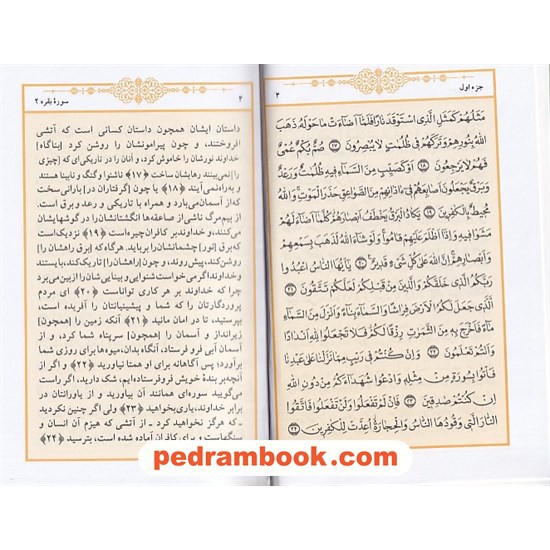 جزء اول
۴
مَثَلُهُمْ كَمَثَلِ الَّذِى اسْتَوْقَدَ نَارًا فَلَمَّا أَضَاءَتْ مَا حَوْلَهُ ذَهَبَ
اللهُ بِنُورِهِمْ وَتَرَكَهُمْ فِى ظُلُمَاتٍ لَا يُبْصِرُونَ ﴿۱۷﴾ صُمٌّ بُكْمٌ عُمْىٌ
فَهُمْ لَا يَرْجِعُونَ ﴿۱۸﴾ أَوْ كَصَيِّبٍ مِنَ السَّمَاءِ فِيهِ ظُلُمَاتٌ وَرَعْدٌ
وَبَرْقٌ يَجْعَلُونَ أَصَابِعَهُمْ فِى ءَاذَانِهِمْ مِنَ الصَّوَاعِقِ حَذَرَ الْمَوْتِ وَاللهُ
مُحِيطٌ بِالْكَافِرِينَ ﴿۱۹﴾ يَكَادُ الْبَرْقُ يَخْطَفُ أَبْصَارَهُمْ كُلَّمَا أَضَاءَ لَهُمْ
مَشَوْا فِيهِ وَإِذَا أَظْلَمَ عَلَيْهِمْ قَامُوا وَلَوْ شَاءَ اللهُ لَذَهَبَ بِسَمْعِهِمْ
وَأَبْصَارِهِمْ إِنَّ اللهَ عَلَى كُلِّ شَىْءٍ قَدِيرٌ ﴿۲۰﴾ يَا أَيُّهَا النَّاسُ اعْبُدُوا
رَبَّكُمُ الَّذِى خَلَقَكُمْ وَالَّذِينَ مِنْ قَبْلِكُمْ لَعَلَّكُمْ تَتَّقُونَ ﴿۲۱﴾
الَّذِى جَعَلَ لَكُمُ الْأَرْضَ فِرَاشًا وَالسَّمَاءَ بِنَاءً وَأَنْزَلَ مِنَ السَّمَاءِ
مَاءً فَأَخْرَجَ بِهِ مِنَ الثَّمَرَاتِ رِزْقًا لَكُمْ فَلَا تَجْعَلُوا لِلّٰهِ أَنْدَادًا
وَأَنْتُمْ تَعْلَمُونَ ﴿۲۲﴾ وَإِنْ كُنْتُمْ فِى رَيْبٍ مِمَّا نَزَّلْنَا عَلَى عَبْدِنَا
فَأْتُوا بِسُورَةٍ مِنْ مِثْلِهِ وَادْعُوا شُهَدَاءَكُمْ مِنْ دُونِ اللهِ
إِنْ كُنْتُمْ صَادِقِينَ ﴿۲۳﴾ فَإِنْ لَمْ تَفْعَلُوا وَلَنْ تَفْعَلُوا فَاتَّقُوا
النَّارَ الَّتِى وَقُودُهَا النَّاسُ وَالْحِجَارَةُ أُعِدَّتْ لِلْكَافِرِينَ ﴿۲۴﴾
۴
سورهٔ بقره ۲
داستان ایشان همچون داستان کسانی است که آتشی
افروختند، و چون پیرامونشان را روشن کرد [بناگاه]
خداوند نورشان را خاموش کرد، و آنان را در تاریکی‌ای که [چیزی
را] نمی‌بینند رهایشان ساخت ﴿۱۷﴾ ناشنوا و گنگ و نابینا هستند
و به‌راه‌نمی‌آیند ﴿۱۸﴾ یا چون [گرفتاران در] بارانی سخت
که از آسمان می‌بارد و همراه با تاریکی و رعد و برق است.
از بیم مرگ ناشی از صاعقه‌ها انگشتانشان را در گوشهایشان
می‌کنند، و خداوند بر کافران چیره است ﴿۱۹﴾ نزدیک است
که برق [نور] چشمانشان را برباید. هرگاه که [برق راهشان را]
روشن کند، پیش روند، و چون [راهشان را] تاریک کند، بایستند
و خداوند اگر می‌خواست شنوایی و بینایی شان را از بین می‌برد
چرا که خداوند بر هر کاری تواناست ﴿۲۰﴾ ای مردم
پروردگارتان را که شما و پیشینیانتان را آفریده است،
بپرستید، تا در امان مانید ﴿۲۱﴾ آنکه زمین را [همچون]
زیرانداز و آسمان را [همچون] سرپناه شما کرد، و از
آسمان آبی فرو فرستاد، آنگاه بدان، میوه‌ها برای روزی شما
برآورد؛ پس آگاهانه برای او همتا نیاورید ﴿۲۲﴾ و اگر از
آنچه بر بندهٔ خویش فروفرستاده‌ایم، شک دارید، اگر راست
می‌گویید سوره‌ای همانند آن بیاورید و از یاورانتان در
برابر خداوند، یاری بخواهید ﴿۲۳﴾ ولی اگر چنین نکردید
ـ که هرگز نخواهید کرد ـ از آتشی که هیزم آن انسان و
سنگهاست و برای کافران آماده شده است، بترسید ﴿۲۴﴾
pedrambook.com